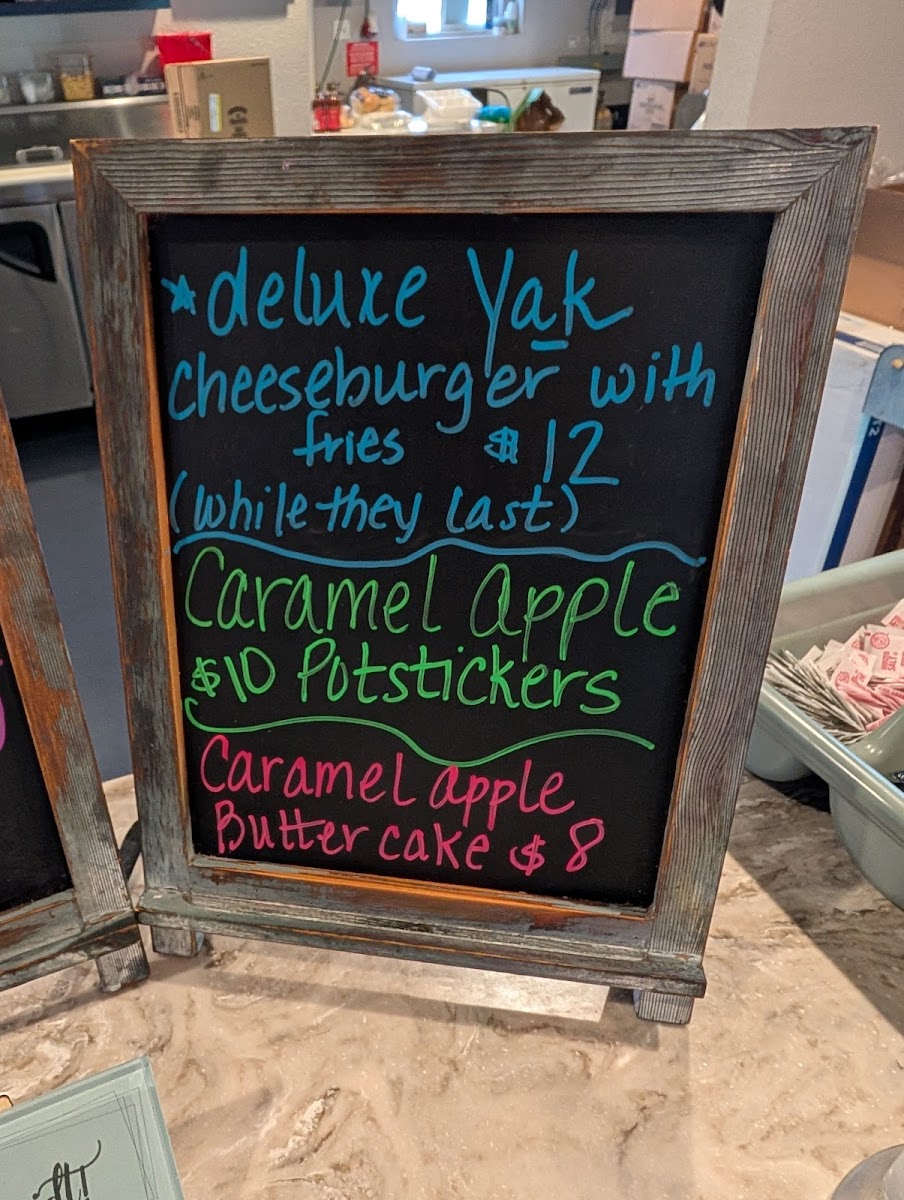 ☆deluxe Yak
cheeseburger with
fries $12
(while they last)
Caramel Apple
$10 Potstickers
Caramel apple
Butter cake $8